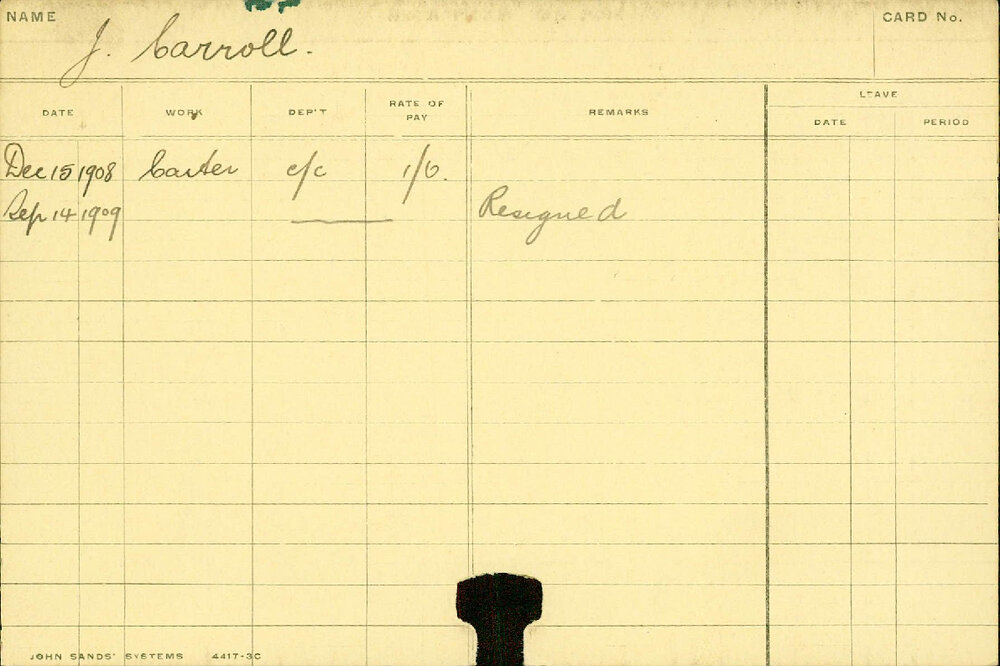 NAME
J. Carroll.
CARD No.
DATE WORK DEP'T RATE OF PAY REMARKS LEAVE
DATE PERIOD
Dec 15 1908 Carter c/c 1/6.
Sep 14 1909 Resigned
JOHN SANDS' SYSTEMS 4417-3C